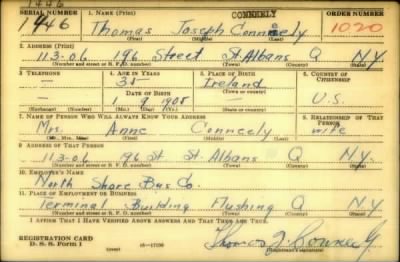 1446
CONNEELY
SERIAL NUMBER 1. NAME (Print) ORDER NUMBER
1446 Thomas Joseph Conneely 1020
(First) (Middle) (Last)
2. ADDRESS (Print)
113-06 196 Street St Albans Q N.Y.
(Number and street or R. F. D. number) (Town) (County) (State)
3. TELEPHONE 4. AGE IN YEARS 5. PLACE OF BIRTH 6. COUNTRY OF CITIZENSHIP
35 Ireland
(Town or county)
DATE OF BIRTH
1 9 1905 U.S.
(Exchange) (Number) (Mo.) (Day) (Yr.) (State or country)
7. NAME OF PERSON WHO WILL ALWAYS KNOW YOUR ADDRESS 8. RELATIONSHIP OF THAT PERSON
Mrs. Anne Conneely wife
(Mr., Mrs., Miss) (First) (Middle) (Last)
9. ADDRESS OF THAT PERSON
113-06 196 St St. Albans Q N.Y.
(Number and street or R. F. D. number) (Town) (County) (State)
10. EMPLOYER'S NAME
North Shore Bus Co.
11. PLACE OF EMPLOYMENT OR BUSINESS
Terminal Building Flushing Q N.Y.
(Number and street or R. F. D. number) (Town) (County) (State)
I AFFIRM THAT I HAVE VERIFIED ABOVE ANSWERS AND THAT THEY ARE TRUE.
REGISTRATION CARD
D. S. S. Form 1 (over) 16-17105 Thomas J. Conneely
(Registrant's signature)